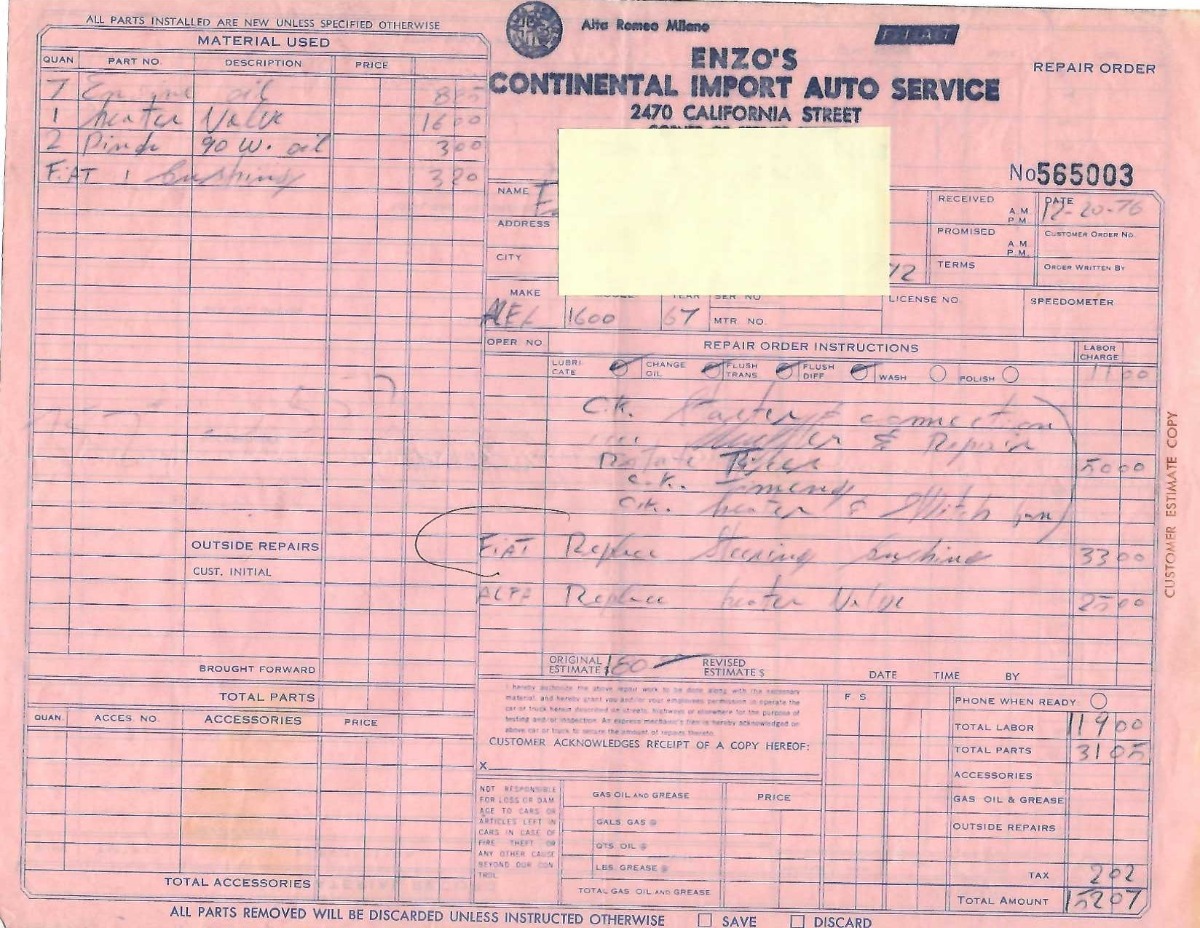 ALL PARTS INSTALLED ARE NEW UNLESS SPECIFIED OTHERWISE
MATERIAL USED
QUAN PART NO. DESCRIPTION PRICE
7 Engine oil 885
1 heater Valve 1600
2 90 W. oil 300
FiAT 1 bushing 320
OUTSIDE REPAIRS
CUST. INITIAL
BROUGHT FORWARD
TOTAL PARTS
QUAN ACCES. NO. ACCESSORIES PRICE
TOTAL ACCESSORIES
Alfa Romeo Milano
FIAT
ENZO'S
CONTINENTAL IMPORT AUTO SERVICE
2470 CALIFORNIA STREET
REPAIR ORDER
No 565003
NAME
ADDRESS
CITY
RECEIVED A.M. P.M.
DATE 12-20-76
PROMISED A.M. P.M.
CUSTOMER ORDER NO.
TERMS
ORDER WRITTEN BY
MAKE YEAR SER. NO. LICENSE NO. SPEEDOMETER
1600 67 MTR. NO.
OPER. NO. REPAIR ORDER INSTRUCTIONS LABOR CHARGE
LUBRICATE CHANGE OIL FLUSH TRANS FLUSH DIFF WASH POLISH 1100
C.K. starter & connection
& Repair
Rotate Tires 5000
C.K.
C.K. heater &
FiAT Replace Steering bushing 3300
ALFA Replace heater Valve 2500
ORIGINAL ESTIMATE $ 180 REVISED ESTIMATE $
DATE TIME BY
I hereby authorize the above repair work to be done along with the necessary
material, and hereby grant you and/or your employees permission to operate the
car or truck herein described on streets, highways or elsewhere for the purpose of
testing and/or inspection. An express mechanic's lien is hereby acknowledged on
above car or truck to secure the amount of repairs thereto.
CUSTOMER ACKNOWLEDGES RECEIPT OF A COPY HEREOF:
X
F S
PHONE WHEN READY
TOTAL LABOR 11900
TOTAL PARTS 3105
ACCESSORIES
GAS OIL & GREASE
OUTSIDE REPAIRS
TAX 202
TOTAL AMOUNT 15207
NOT RESPONSIBLE
FOR LOSS OR DAM
AGE TO CARS OR
ARTICLES LEFT IN
CARS IN CASE OF
FIRE THEFT OR
ANY OTHER CAUSE
BEYOND OUR CON
TROL
GAS OIL AND GREASE PRICE
GALS. GAS @
QTS. OIL @
LBS. GREASE @
TOTAL GAS OIL AND GREASE
CUSTOMER ESTIMATE COPY
ALL PARTS REMOVED WILL BE DISCARDED UNLESS INSTRUCTED OTHERWISE SAVE DISCARD